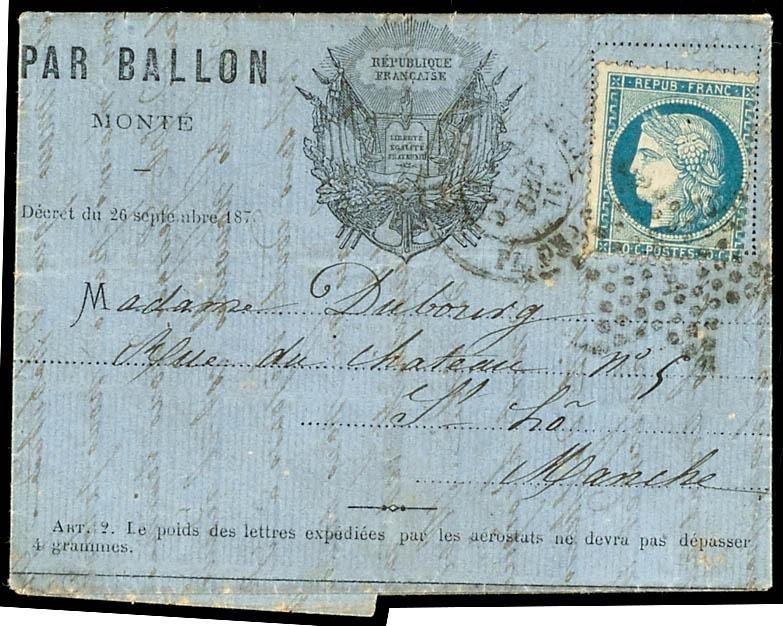 PAR BALLON
MONTÉ
Décret du 26 septembre 1870
RÉPUBLIQUE
FRANÇAISE
LIBERTÉ
ÉGALITÉ
FRATERNITÉ
REPUB·FRANC
POSTES
Madame Dubourg
Rue du chateau n° 5
St Lô
Manche
ART. 2. Le poids des lettres expédiées par les aérostats ne devra pas dépasser
4 grammes.